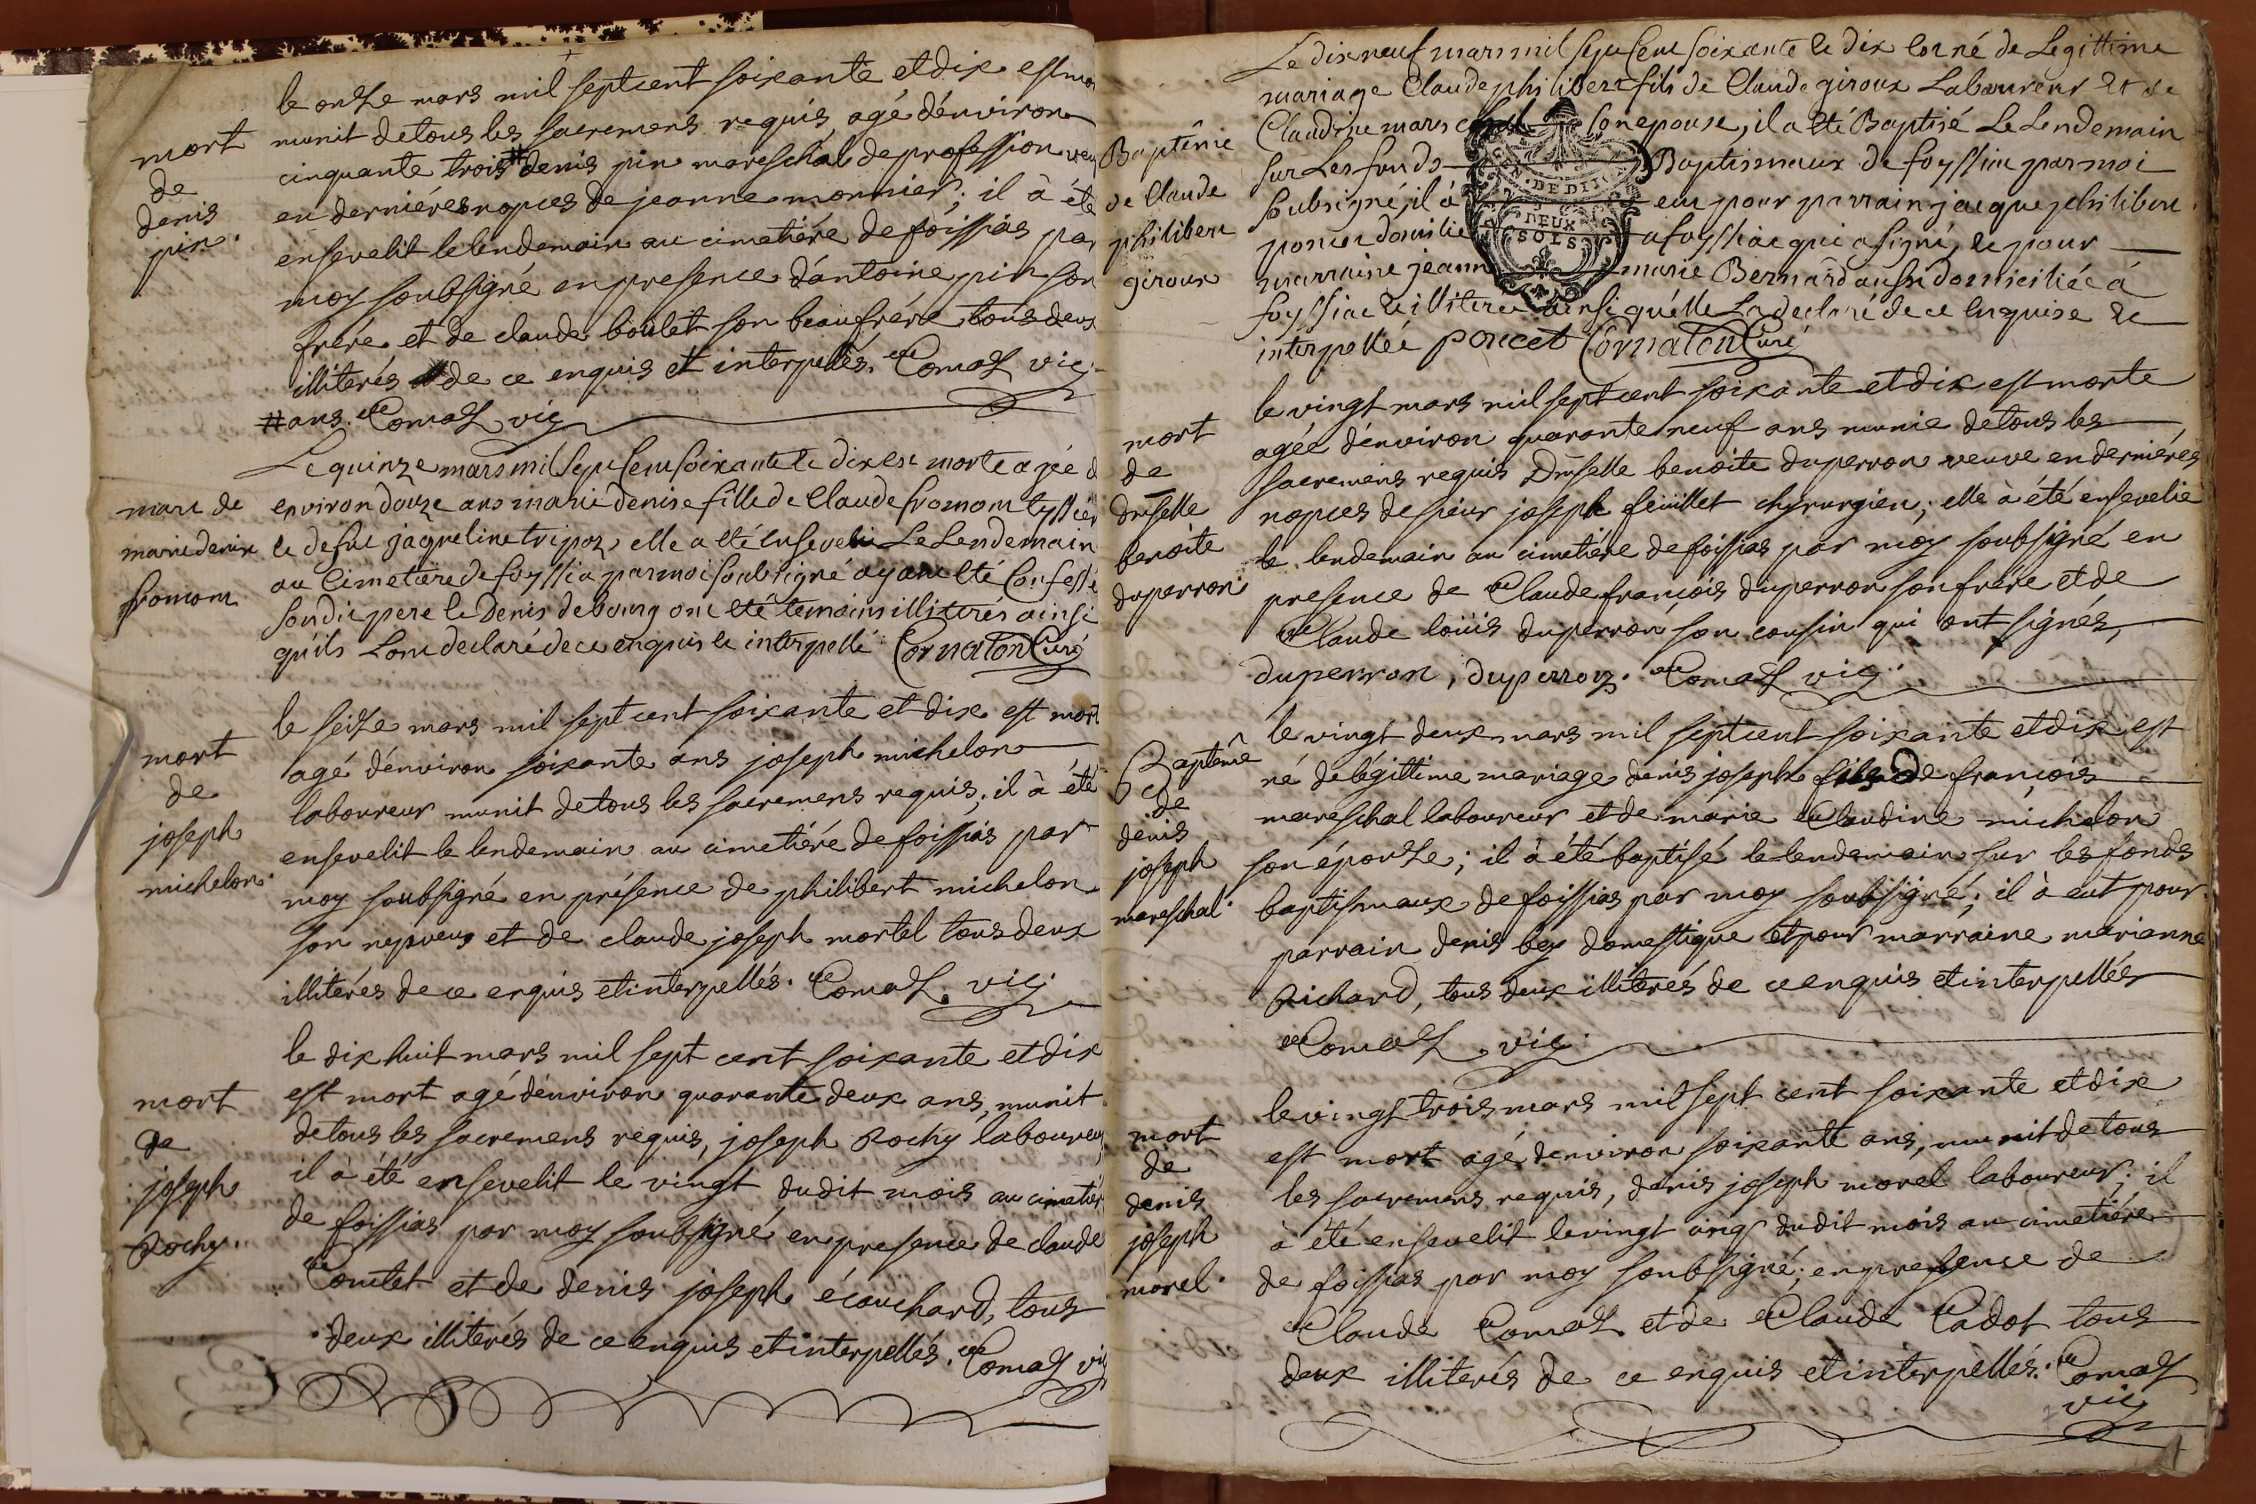 mort
de
denis
pin.
le onze mars mil sept cent soixante et dix est mor
munit de tous les sacremens requis agé d'environ
cinquante trois # denis pin mareschal de profession veuf
en derniéres nopces de jeanne monnier; il à été
ensevelit le lendemain au cimetiére de foissias par
moy soubsigné en presence d'antoine pin son
frére et de claude boulet son beaufrére tous deux
illiterés de ce enquis et interpellés. Comas vic:
# ans. Comas vic
marie denise
fromom
Le quinze mars mil Sept Cent soixante et dix est morte agée d
environ douze ans marie denise fille de Claude fromom tyssier
et defute jaqueline tripoz, elle a été Ensevelie Le Lendemain
au Cimetiere de foyssia par moi soubsigné ayant été Confessé
Son dit pere et Denis debourg ont été temoins illiterés ainsi
qu'ils Lont declaré de ce enquis et interpellé Cornaton Curé
mort
de
joseph
michelon.
le seize mars mil sept cent soixante et dix est mort
agé d'environ soixante ans joseph michelon
laboureur munit de tous les sacremens requis; il à été
ensevelit le lendemain au cimetiére de foissias par
moy soubsigné en présence de philibert michelon
son nepveu et de claude joseph mortel tous deux
illiterés de ce enquis et interpellés. Comas. vic;
mort
de
joseph
Rochy.
le dix huit mars mil sept cent soixante et dix
est mort agé d'environ quarante deux ans, munit
de tous les sacremens requis, joseph Rochy laboureur;
il à été ensevelit le vingt du dit mois au cimetiér
de foissias par moy soubsigné en presence de claude
Comtet et de denis joseph écouchard, tous
deux illiterés de ce enquis et interpellés. Comas vic
Baptême
de Claude
philibert
giroux
Le dix neuf mars mil Sept Cent soixante et dix est né de Legittime
mariage Claude philibert fils de Claude giroux Laboureur et de
Claudine Son epouse, il a été Baptisé Le Lendemain
Sur Les fonds Baptismaux de foyssia par moi
Soubsigné, il à eut pour parrain jacque philibert
poncet domicilié a foyssia qui a signé, et pour
marraine jeanne marie Bernard aussi domiciliée à
foyssia et illiterée ainsi qu'elle La declaré de ce Enquise et
interpellée poncet Cornaton Curé
GEN. DE DIJON
DEUX
SOLS
mort
de
dmselle
benoite
duperron.
le vingt mars mil sept cent soixante et dix est morte
agée d'environ quarante neuf ans munie de tous les
sacremens requis Dmselle benoite duperron veuve en derniérés
nopces de sieur joseph feüillet chyrurgien; elle à été ensevelie
le lendemain au cimetiére de foissias par moy soubsigné en
presence de Claude françois duperron son frére et de
Claude loüis duperron son cousin qui ont signés,
duperron, duperron. Comas vic:
Baptême
de
denis
joseph
mareschal.
le vingt deux mars mil sept cent soixante et dix est
né de légittime mariage denis joseph fils de françois
mareschal laboureur et de marie Claudine michelon
son épouse; il à été baptisé le lendemain sur les fonds
baptismaux de foissias par moy soubsigné; il à eut pour
parrain denis bey domestique et pour marraine marianne
Richard, tous deux illiterés de ce enquis et interpellés
Comas vic:
mort
de
denis
joseph
morel.
le vingt trois mars mil sept cent soixante et dix
est mort agé d'environ soixante ans, munit de tous
les sacremens requis, denis joseph morel laboureur; il
à été ensevelit le vingt cinq du dit mois au cimetiére
de foissias par moy soubsigné; en presence de
Claude Comas et de Claude Cadot tous
deux illiterés de ce enquis et interpellés. Comas
vic